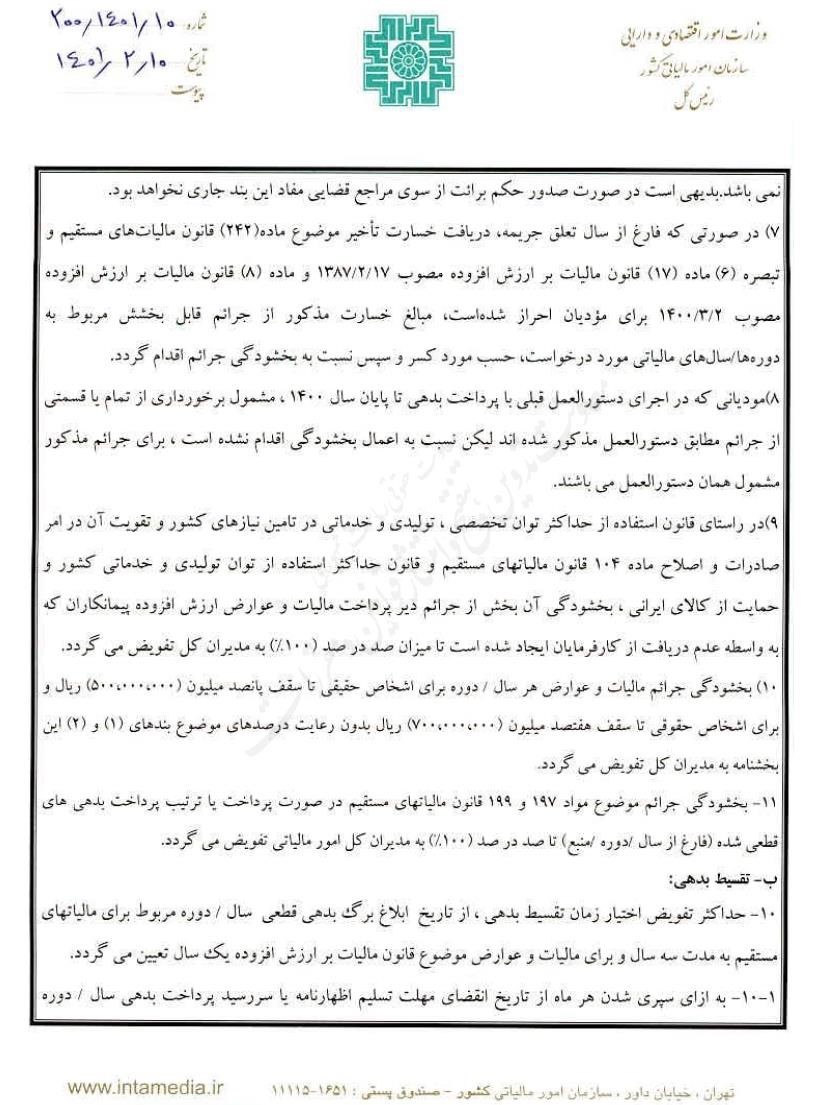 وزارت امور اقتصادی و دارایی
سازمان امور مالیاتی کشور
رئیس کل
شماره ۲۰۰/۱۴۰۱/۱۰
تاریخ ۱۴۰۱/۲/۱۰
پیوست
نمی باشد.بدیهی است در صورت صدور حکم برائت از سوی مراجع قضایی مفاد این بند جاری نخواهد بود.
۷) در صورتی که فارغ از سال تعلق جریمه، دریافت خسارت تأخیر موضوع ماده(۲۴۲) قانون مالیات‌های مستقیم و
تبصره (۶) ماده (۱۷) قانون مالیات بر ارزش افزوده مصوب ۱۳۸۷/۲/۱۷ و ماده (۸) قانون مالیات بر ارزش افزوده
مصوب ۱۴۰۰/۳/۲ برای مؤدیان احراز شده‌است، مبالغ خسارت مذکور از جرائم قابل بخشش مربوط به
دوره‌ها/سال‌های مالیاتی مورد درخواست، حسب مورد کسر و سپس نسبت به بخشودگی جرائم اقدام گردد.
۸)مودیانی که در اجرای دستورالعمل قبلی با پرداخت بدهی تا پایان سال ۱۴۰۰ ، مشمول برخورداری از تمام یا قسمتی
از جرائم مطابق دستورالعمل مذکور شده اند لیکن نسبت به اعمال بخشودگی اقدام نشده است ، برای جرائم مذکور
مشمول همان دستورالعمل می باشند.
۹)در راستای قانون استفاده از حداکثر توان تخصصی ، تولیدی و خدماتی در تامین نیازهای کشور و تقویت آن در امر
صادرات و اصلاح ماده ۱۰۴ قانون مالیاتهای مستقیم و قانون حداکثر استفاده از توان تولیدی و خدماتی کشور و
حمایت از کالای ایرانی ، بخشودگی آن بخش از جرائم دیر پرداخت مالیات و عوارض ارزش افزوده پیمانکاران که
به واسطه عدم دریافت از کارفرمایان ایجاد شده است تا میزان صد در صد (۱۰۰٪) به مدیران کل تفویض می گردد.
۱۰) بخشودگی جرائم مالیات و عوارض هر سال / دوره برای اشخاص حقیقی تا سقف پانصد میلیون (۵۰۰,۰۰۰,۰۰۰) ریال و
برای اشخاص حقوقی تا سقف هفتصد میلیون (۷۰۰,۰۰۰,۰۰۰) ریال بدون رعایت درصدهای موضوع بندهای (۱) و (۲) این
بخشنامه به مدیران کل تفویض می گردد.
۱۱- بخشودگی جرائم موضوع مواد ۱۹۷ و ۱۹۹ قانون مالیاتهای مستقیم در صورت پرداخت یا ترتیب پرداخت بدهی های
قطعی شده (فارغ از سال /دوره /منبع) تا صد در صد (۱۰۰٪) به مدیران کل امور مالیاتی تفویض می گردد.
ب- تقسیط بدهی:
۱۰- حداکثر تفویض اختیار زمان تقسیط بدهی ، از تاریخ ابلاغ برگ بدهی قطعی سال / دوره مربوط برای مالیاتهای
مستقیم به مدت سه سال و برای مالیات و عوارض موضوع قانون مالیات بر ارزش افزوده یک سال تعیین می گردد.
۱-۱۰- به ازای سپری شدن هر ماه از تاریخ انقضای مهلت تسلیم اظهارنامه یا سررسید پرداخت بدهی سال / دوره
تهران ، خیابان داور ، سازمان امور مالیاتی کشور - صندوق پستی : ۱۶۵۱-۱۱۱۱۵
www.intamedia.ir